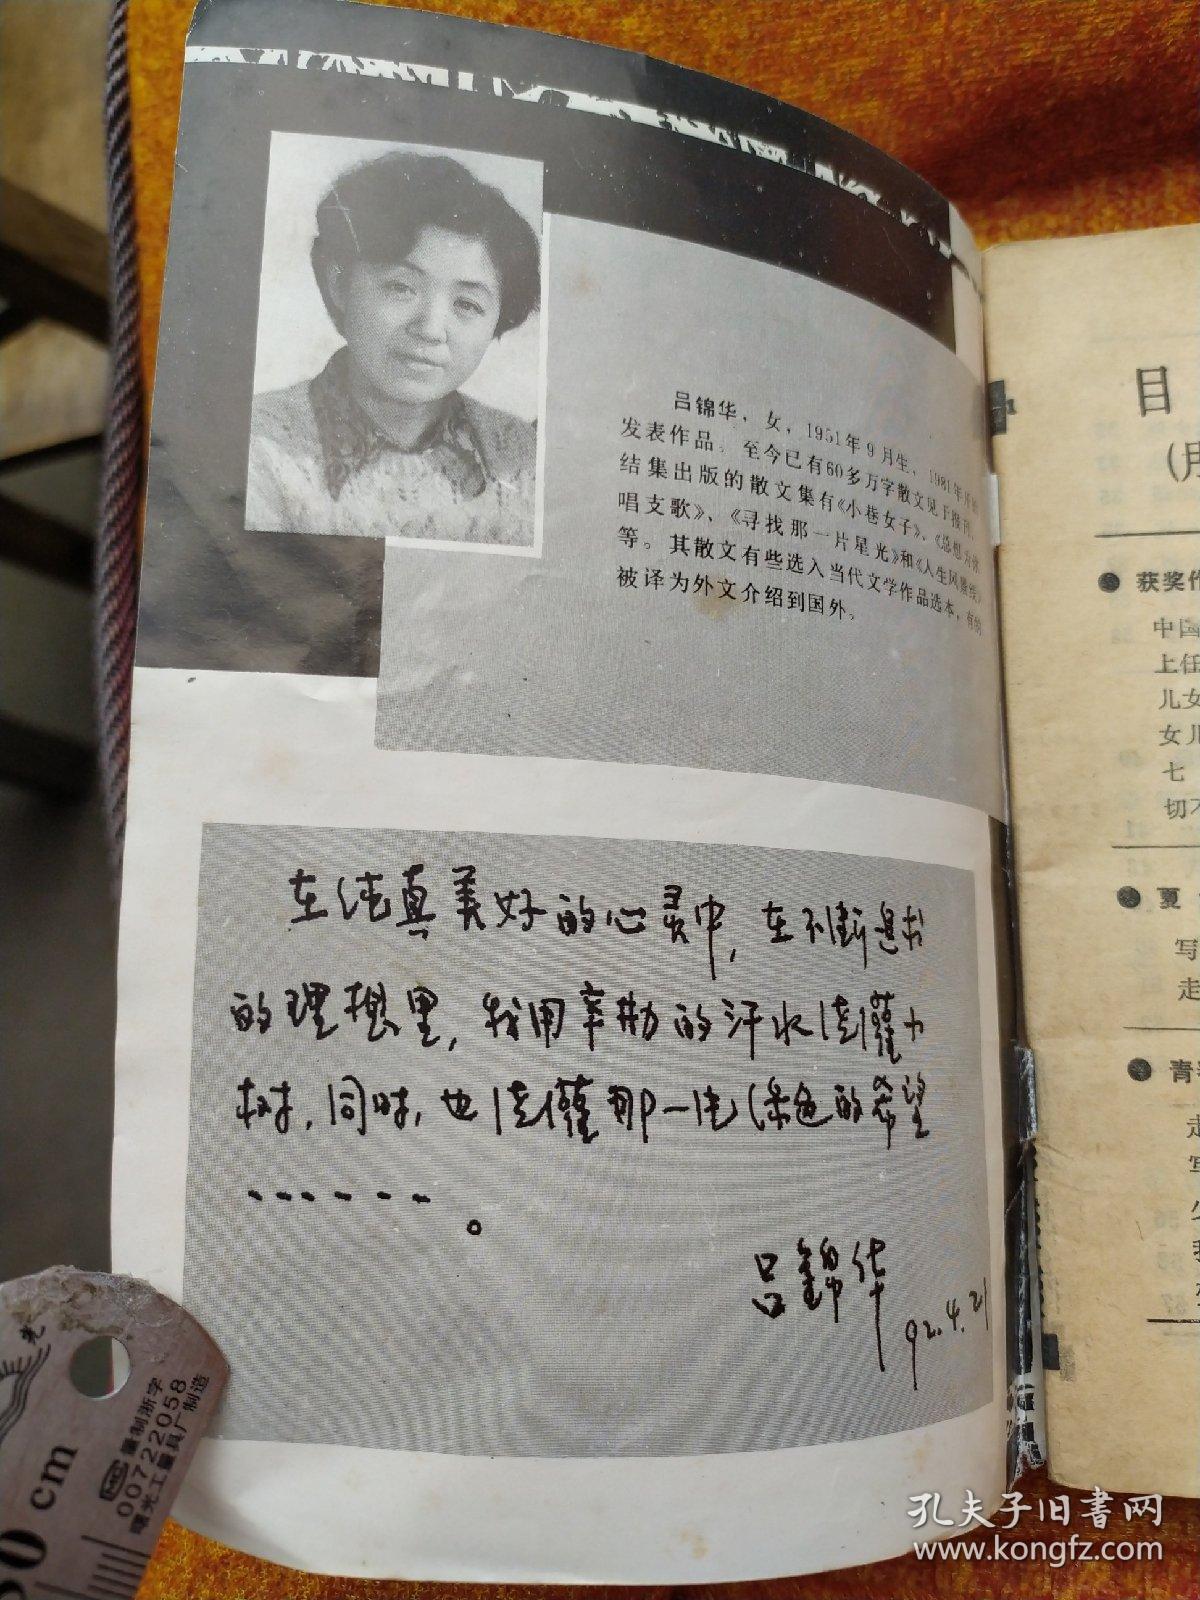 吕锦华，女，1951年9月生，1981年开始
发表作品。至今已有60多万字散文见于报刊，
结集出版的散文集有《小巷女子》、《总想为你
唱支歌》、《寻找那一片星光》和《人生风景线》
等。其散文有些选入当代文学作品选本，有的
被译为外文介绍到国外。
在纯真美好的心灵中，在不断追求
的理想里，我用辛勤的汗水浇灌小
树，同时，也浇灌那一片绿色的希望
……。
吕锦华
92.4.21
目
● 获奖作
中国
上任
儿女
女儿
七
切不
● 夏
写
走
● 青春
走
写
少
我
光
量制浙字
00722058
曙光工量具厂制造
cm
孔夫子旧书网
www.kongfz.com